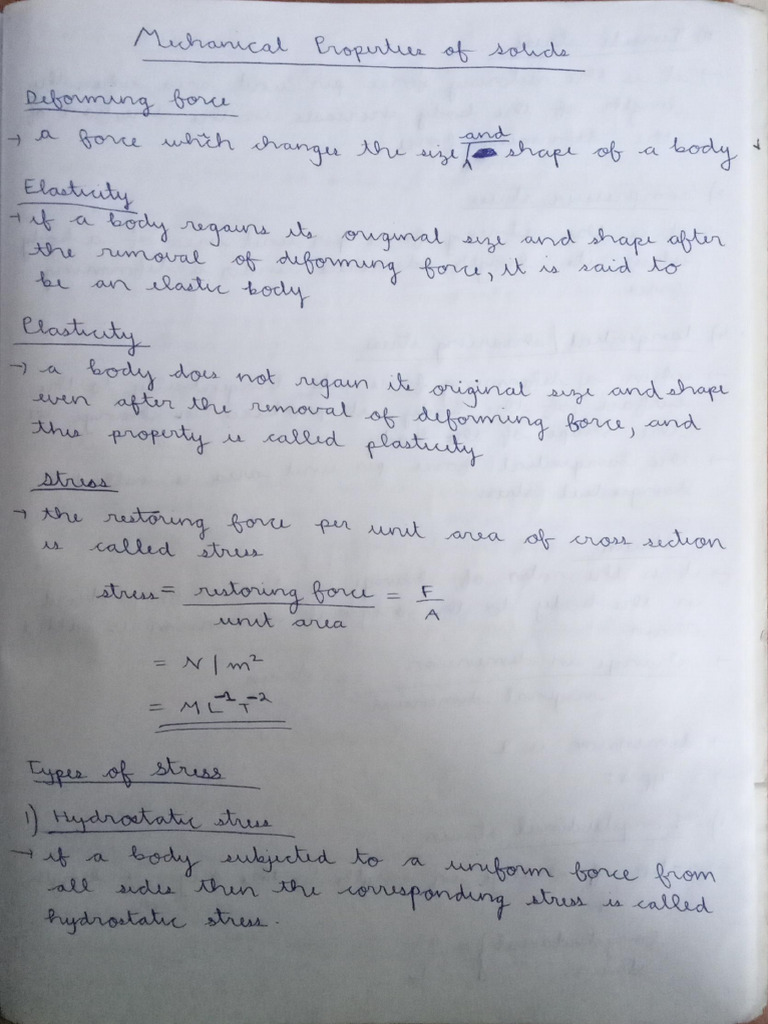 Mechanical Properties of solids
Deforming force
→ a force which changes the size and shape of a body
Elasticity
→ if a body regains its original size and shape after
the removal of deforming force, it is said to
be an elastic body
Plasticity
→ a body does not regain its original size and shape
even after the removal of deforming force, and
this property is called plasticity
Stress
→ the restoring force per unit area of cross section
is called stress
stress = restoring force / unit area = F / A
= N/m²
= ML⁻¹T⁻²
Types of stress
1) Hydrostatic stress
→ if a body subjected to a uniform force from
all sides then the corresponding stress is called
hydrostatic stress.